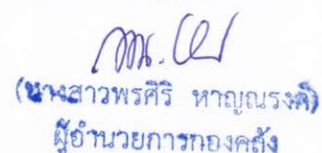 (นางสาวพรศิริ หาญณรงค์)
ผู้อำนวยการกองคลัง